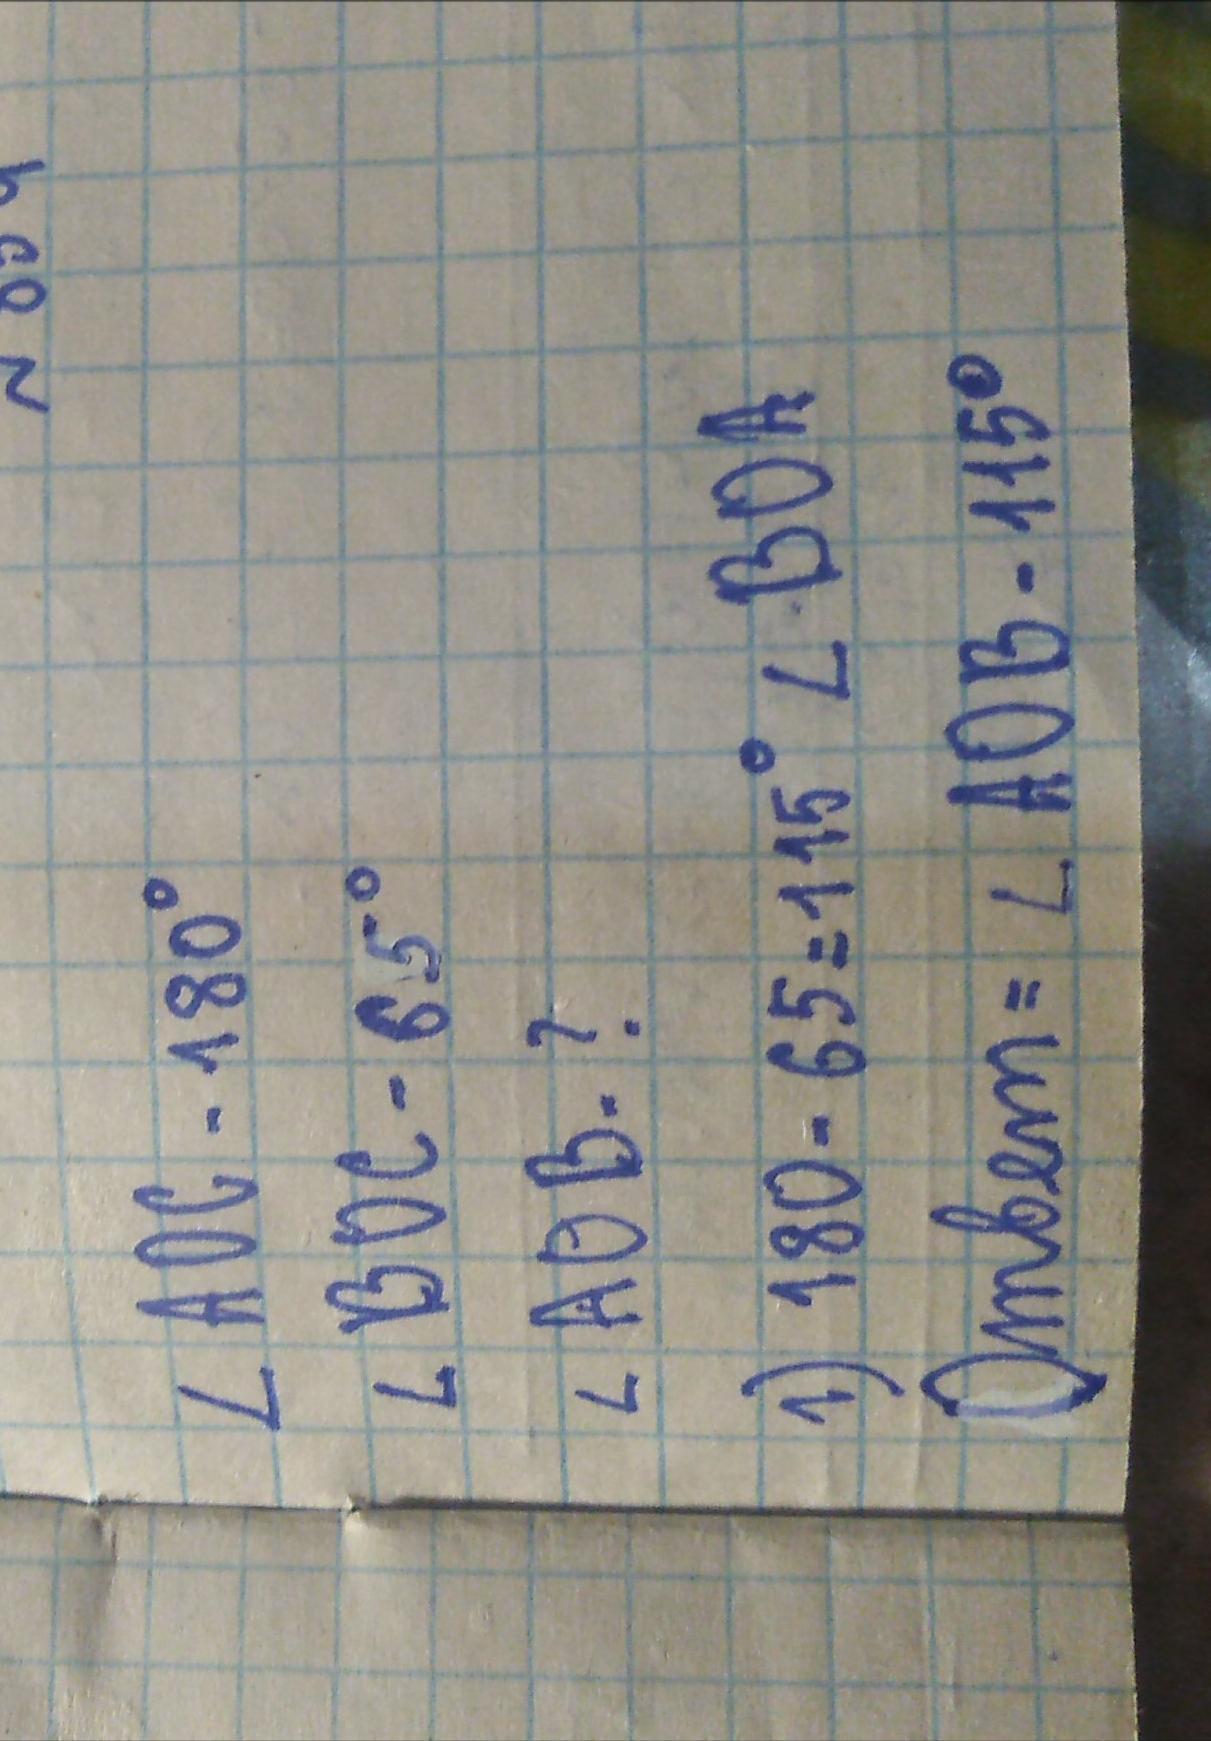 ∠ AOC - 180°
∠ BOC - 65°
∠ AOB - ?
1) 180 - 65 = 115° ∠ BOA
Ответ = ∠ AOB - 115°